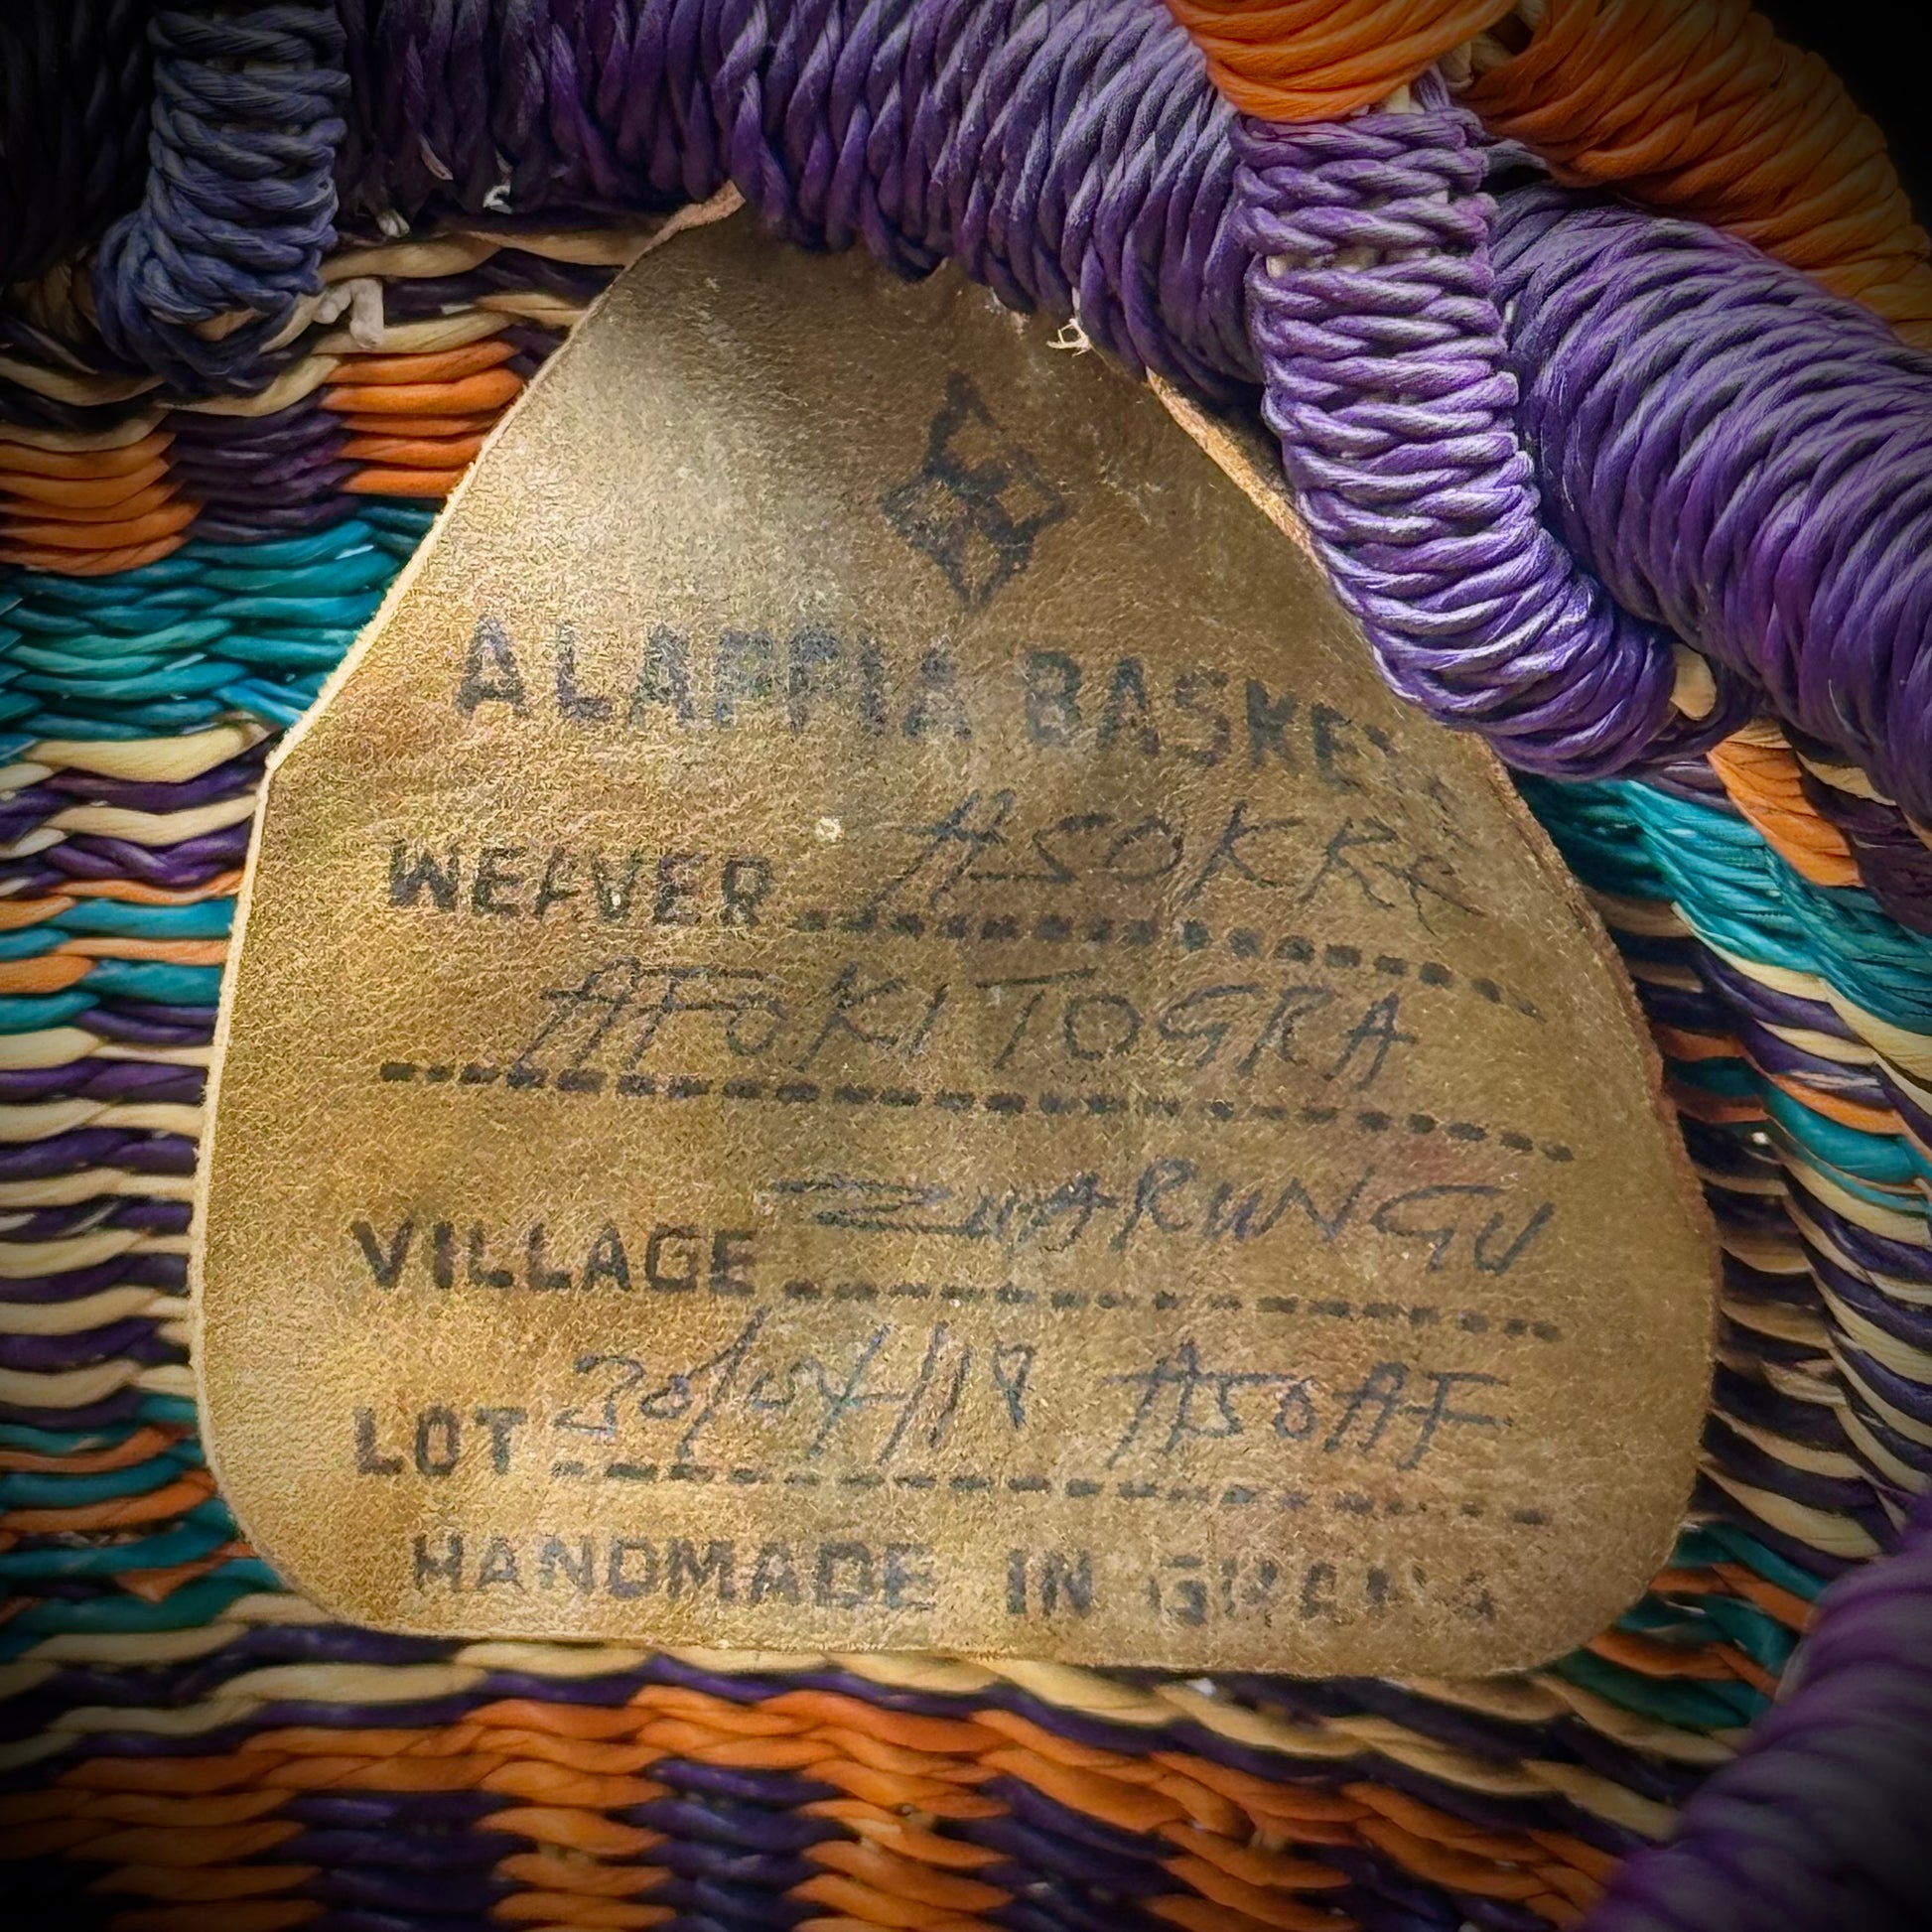 ALAFFIA BASKETS
WEAVER ASOKRE
AFOKITOGRA
VILLAGE ZUARUNGU
LOT 30/04/18 ASOAF
HANDMADE IN GHANA